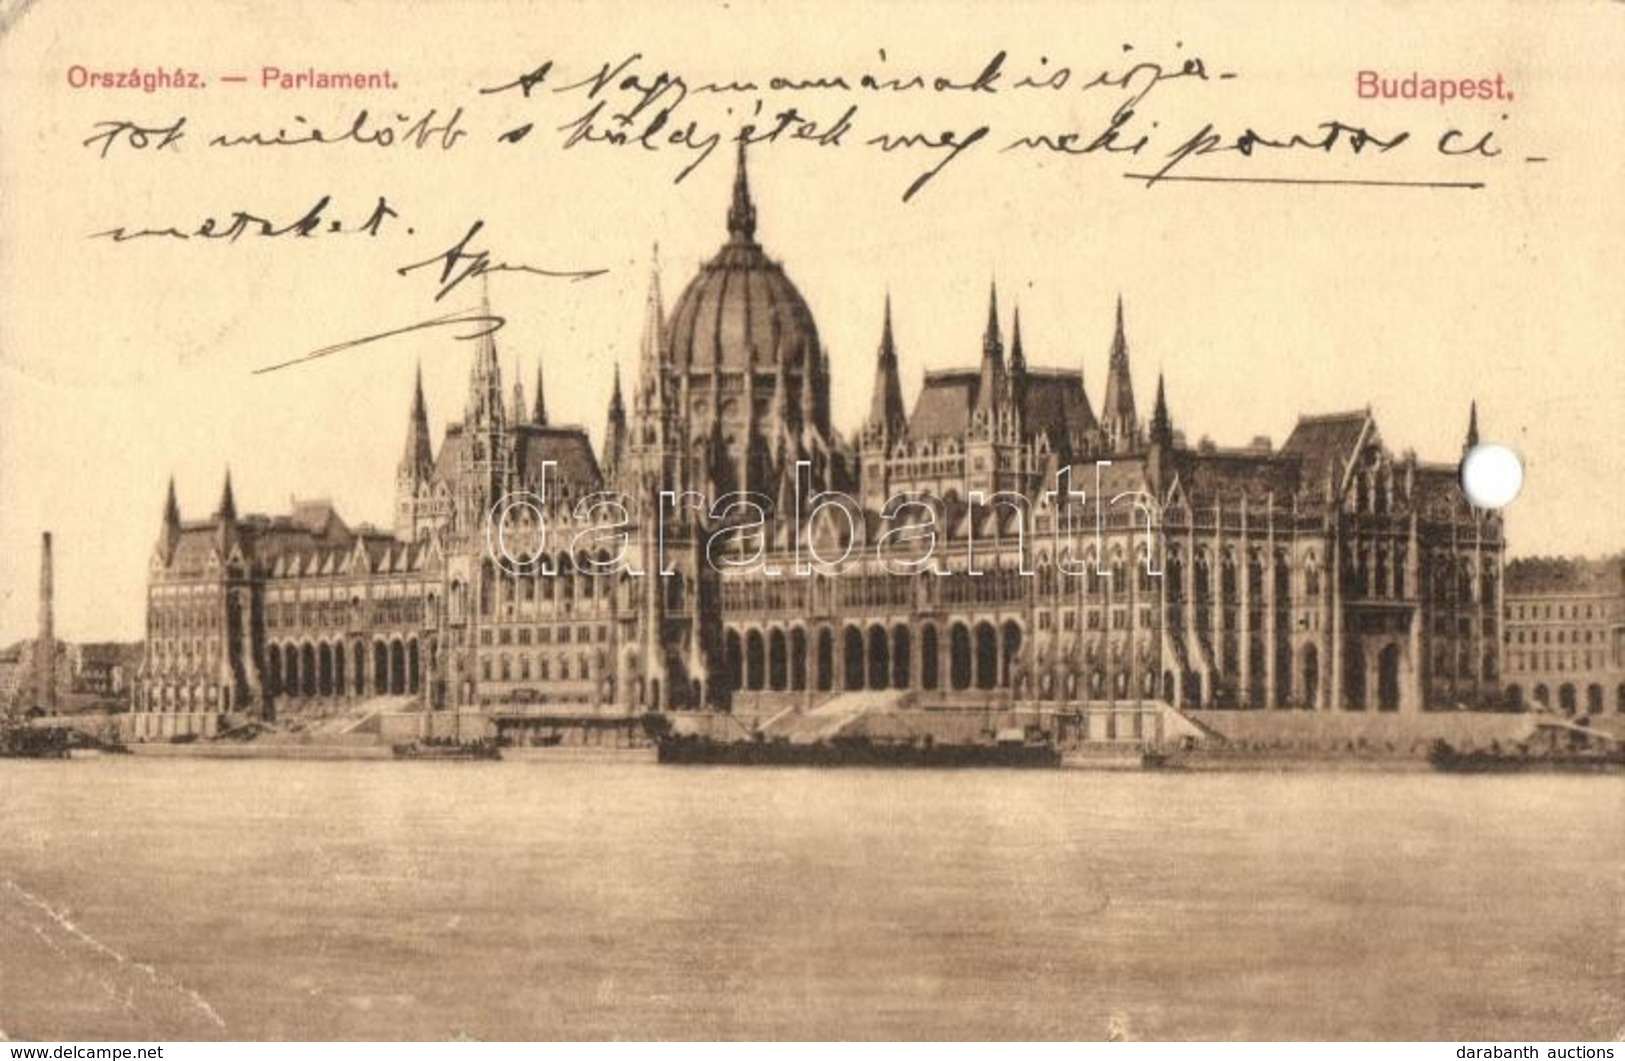 Országház. — Parlament.
Budapest.
A Nagymamának is irja-
tok mielőbb s küldjétek meg neki pontos ci-
meteket.
Apu
darabanth
www.delcampe.net
darabanth auctions